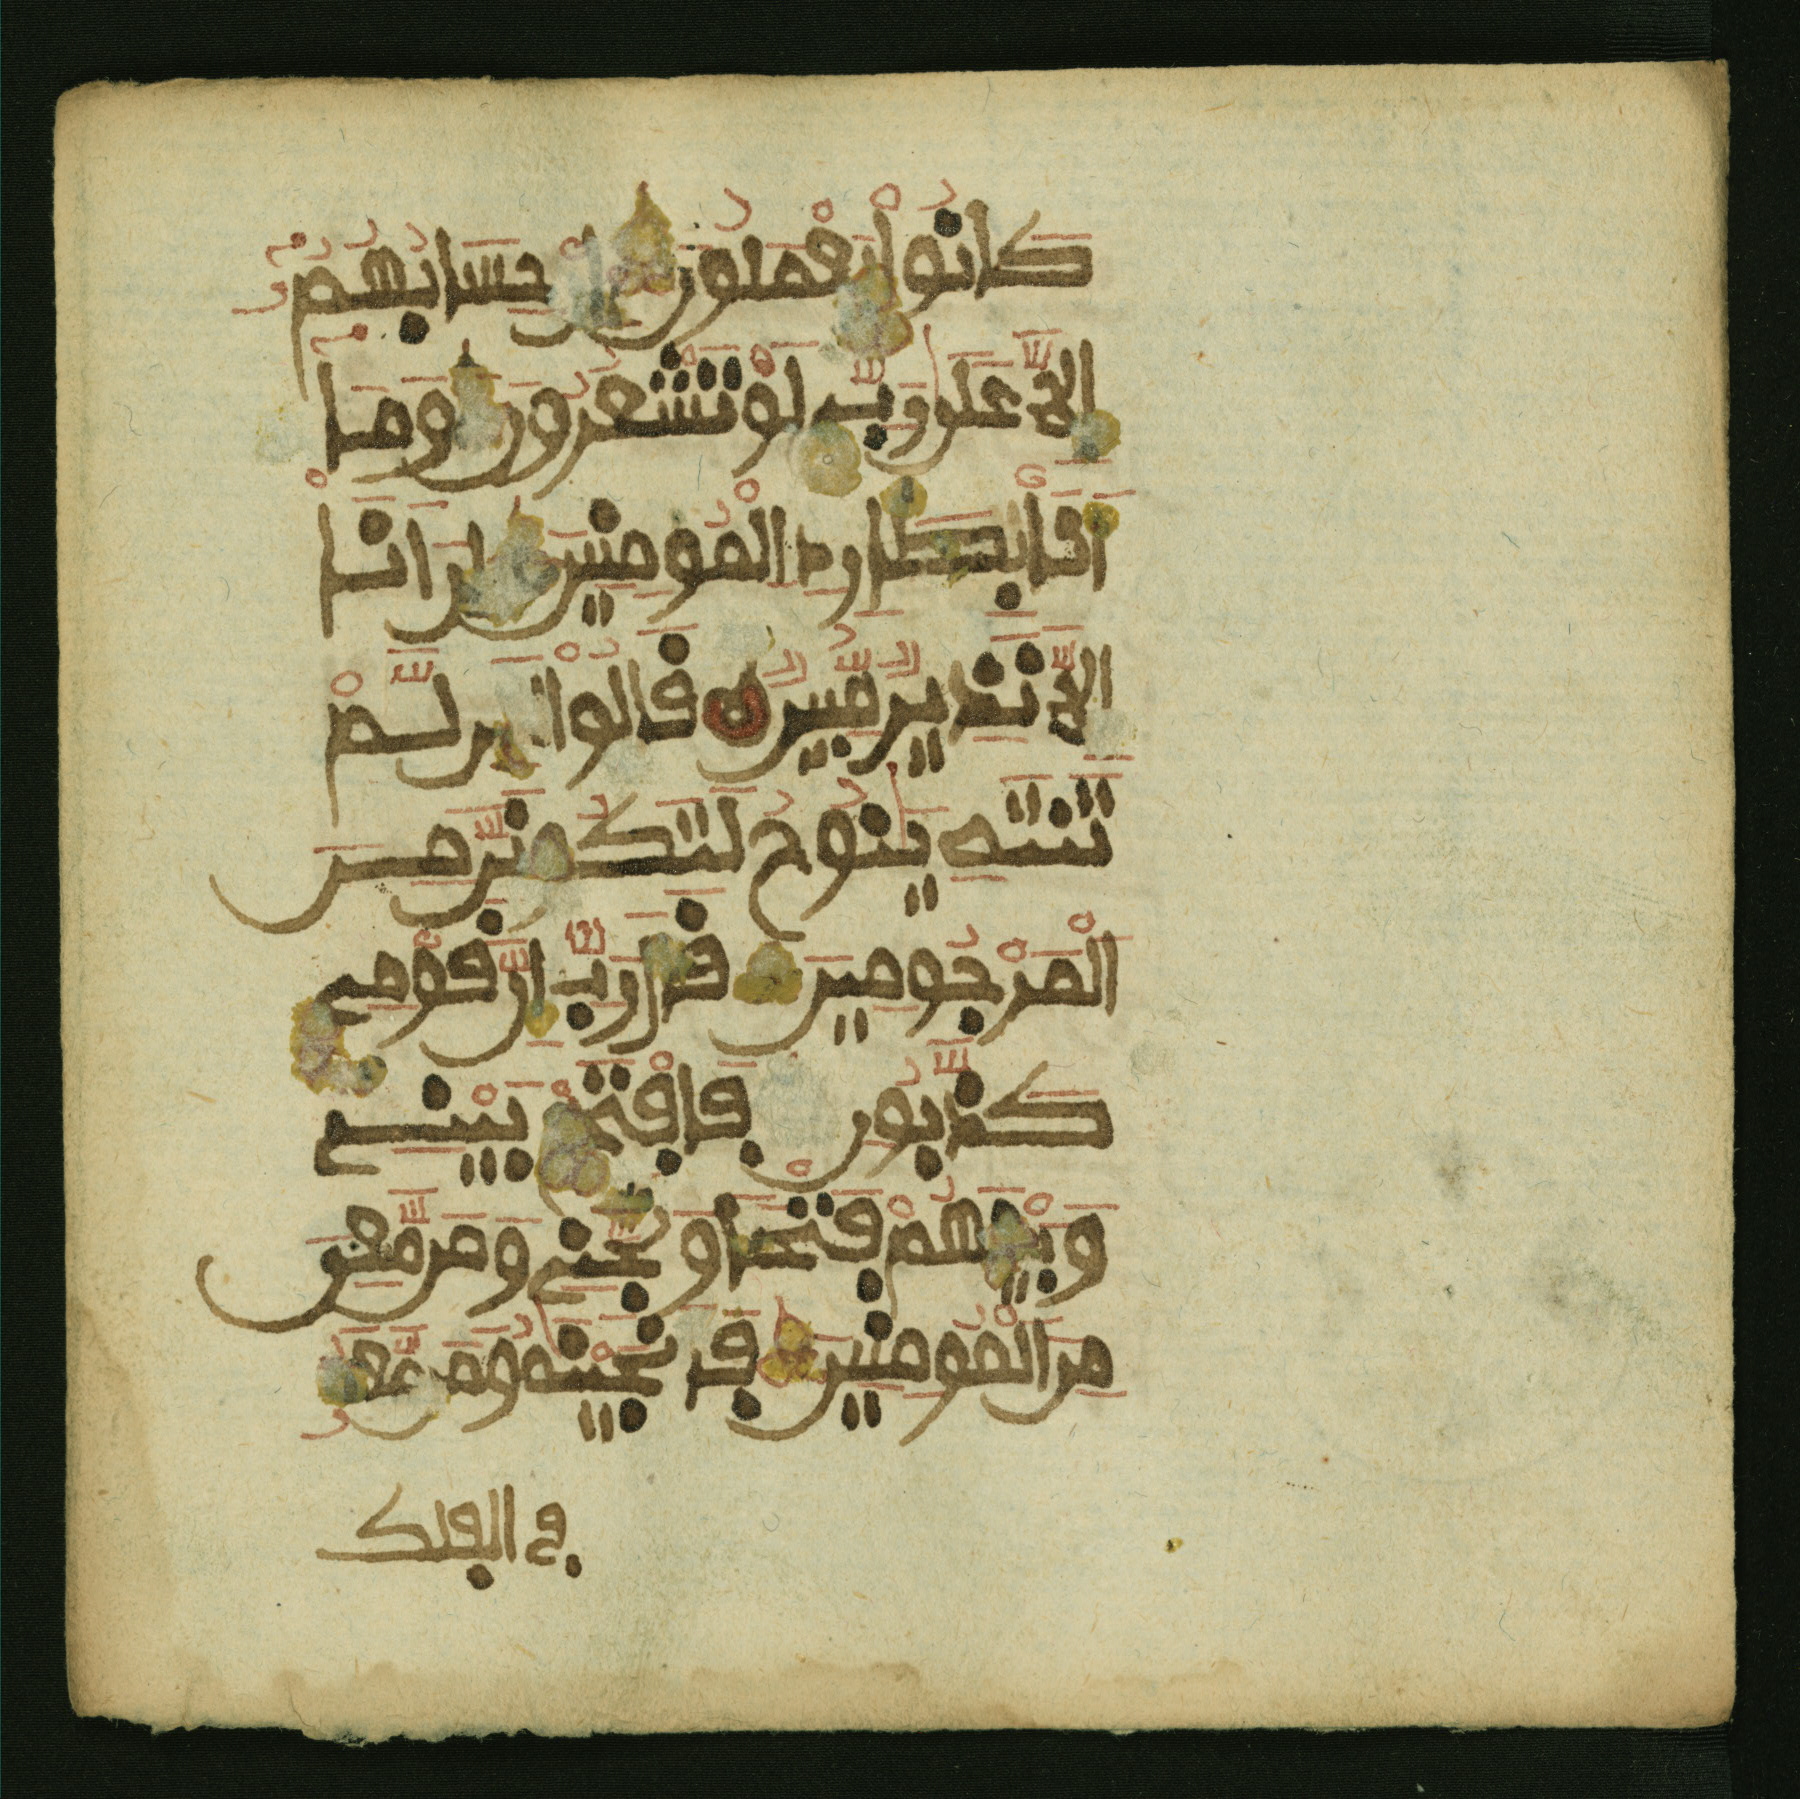 كَانُواْ يَعْمَلُونَ إِنْ حِسَابُهُمُ
إِلَّا عَلَىٰ رَبِّے لَوْ تَشْعُرُونَ وَمَا
أَنَا بِطَارِدِ الْمُومِنِينَ إِنَ اَنَا
إِلَّا نَذِيرٌ مُّبِينٌ قَالُواْ لَئِن لَّمْ
تَنتَهِ يَٰنُوحُ لَتَكُونَنَّ مِنَ
الْمَرْجُومِينَ قَالَ رَبِّ إِنَّ قَوْمِے
كَذَّبُونِ فَافْتَحْ بَيْنِے
وَبَيْنَهُمْ فَتْحًا وَنَجِّنِے وَمَن مَّعِے
مِنَ الْمُومِنِينَ فَأَنجَيْنَٰهُ وَمَن مَّعَهُ
فِے الفلك